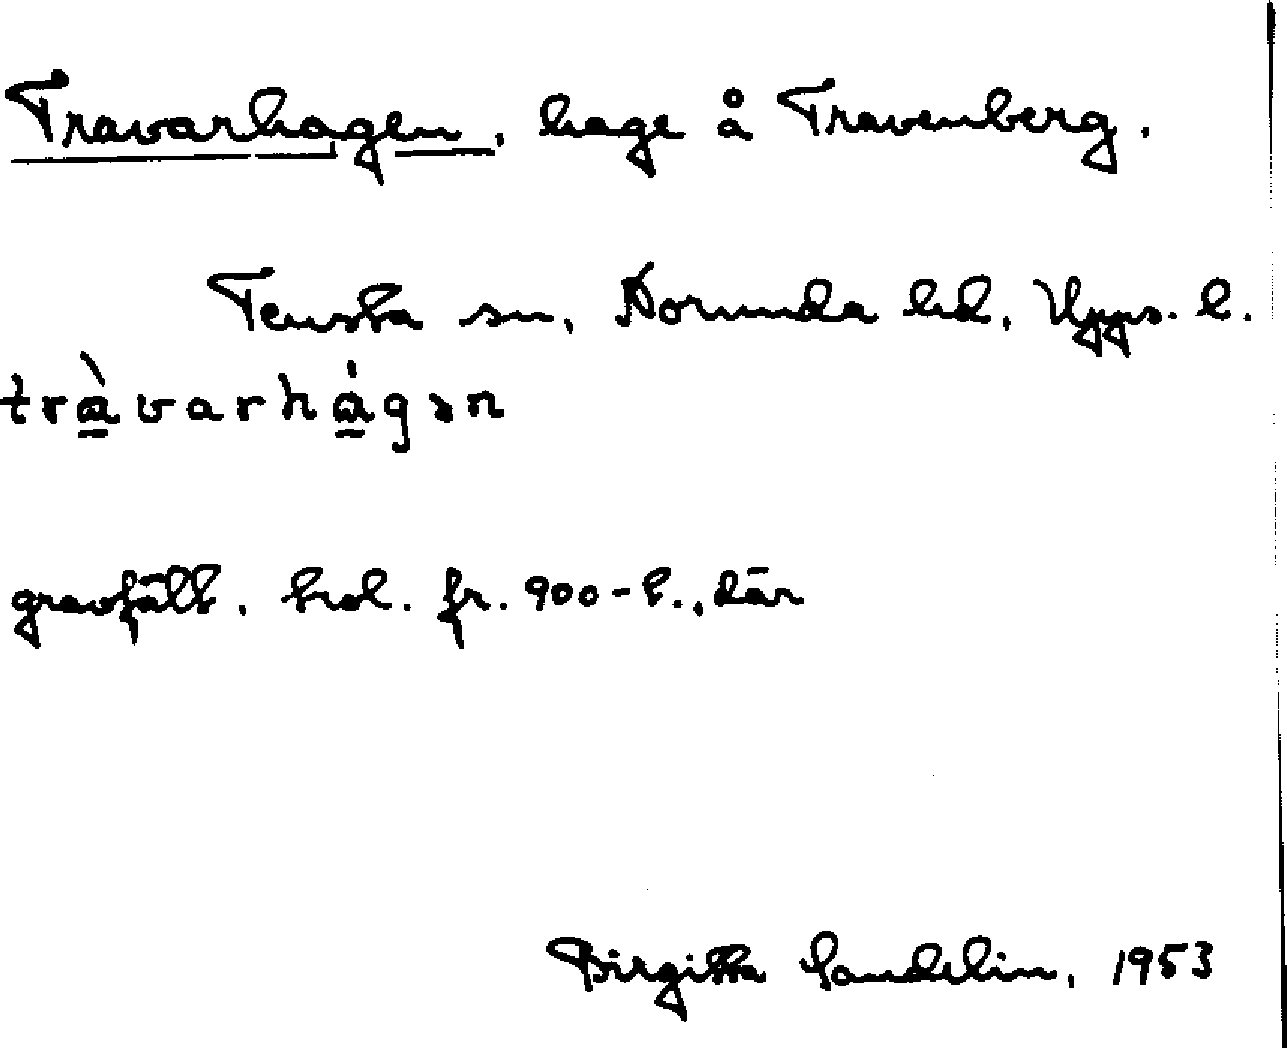 Travarhagen, hage å Travenberg.
Tensta sn, Norunda hd, Upps. l.
tràvarhágən
gravfält, trol. fr. 900-t., där
Birgitta Sandelin, 1953